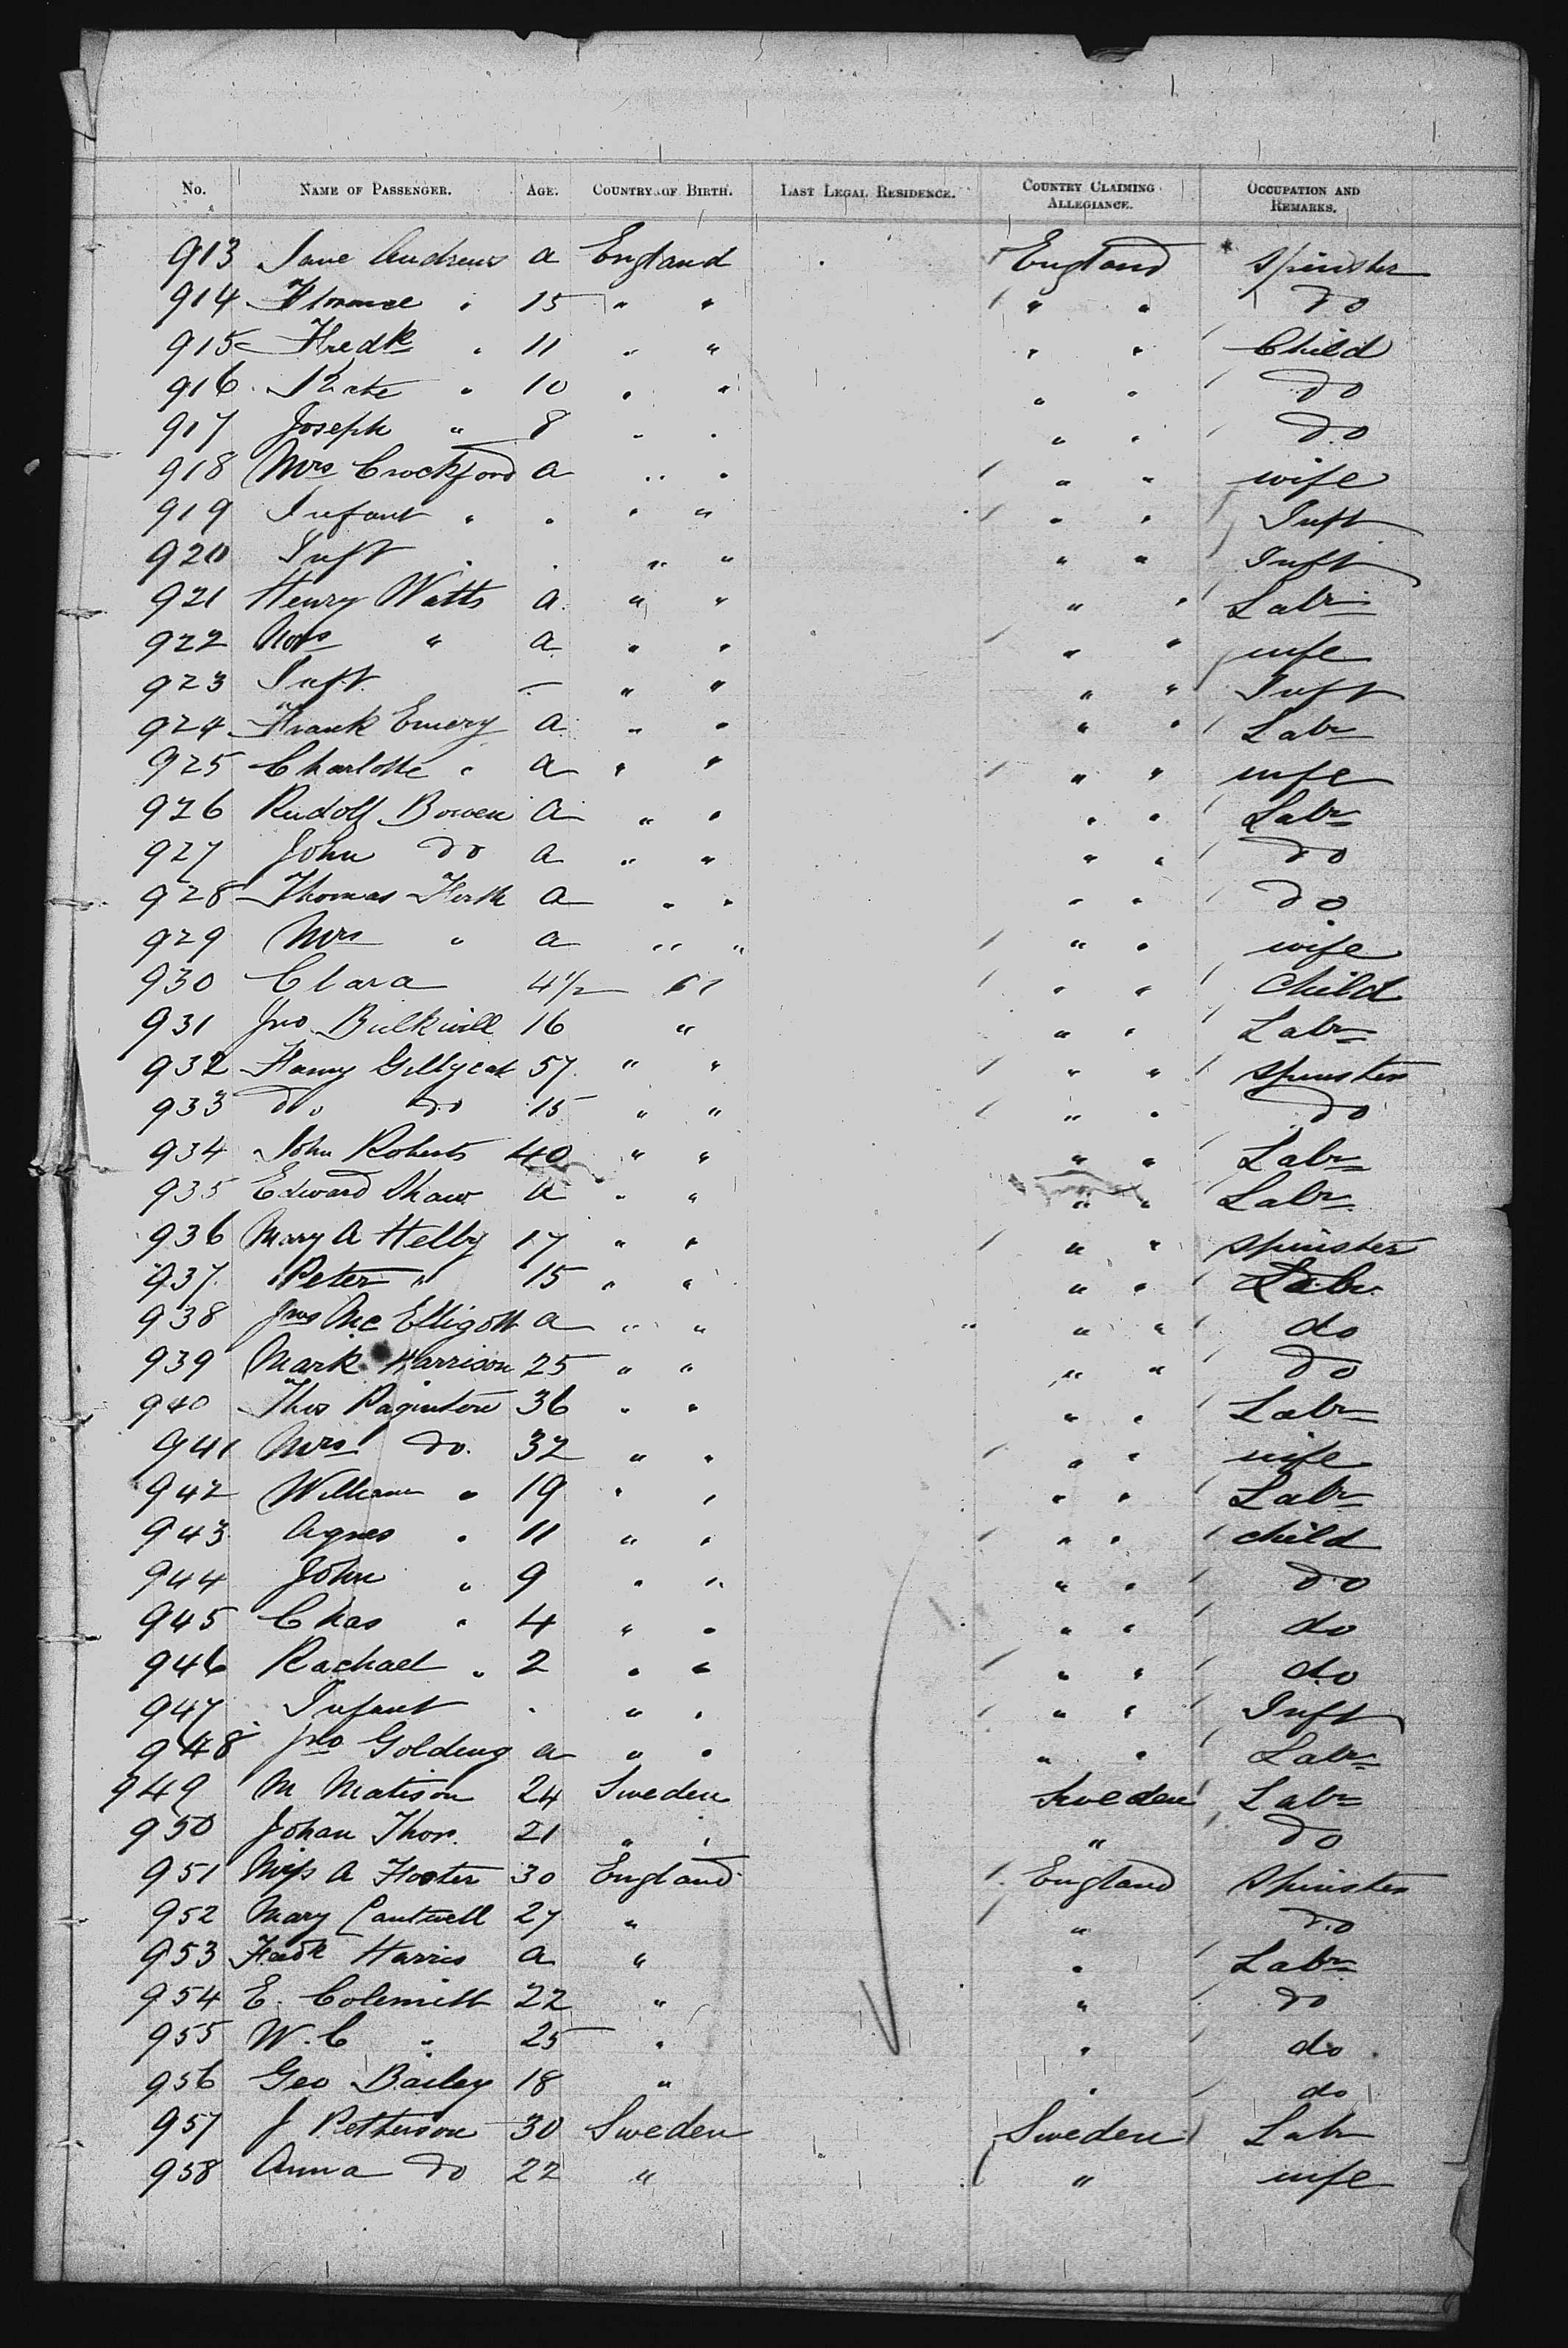 No. NAME OF PASSENGER. AGE. COUNTRY OF BIRTH. LAST LEGAL RESIDENCE. COUNTRY CLAIMING ALLEGIANCE. OCCUPATION AND REMARKS.
913 Jane Andrews a England England Spinster
914 Florence " 15 " " " " do
915 Fredk " 11 " " " " Child
916 Kate " 10 " " " " do
917 Joseph " 8 " " " " do
918 Mrs Crockford a " " " " wife
919 Infant " " " " " " Inft
920 Inft " " " " " " Inft
921 Henry Watts a " " " " Labr
922 Mrs " a " " " " wife
923 Inft — " " " " Inft
924 Frank Emery a " " " " Labr
925 Charlotte " a " " " " wife
926 Rudolf Bowen a " " " " Labr
927 John do a " " " " do
928 Thomas Firth a " " " " do
929 Mrs " a " " " " wife
930 Clara 4½ " " " Child
931 Jno Bulkwill 16 " " " Labr
932 Fanny 57 " " " " Spinster
933 do do 15 " " " " do
934 John Roberts 40 " " " " Labr
935 Edward Shaw a " " " " Labr
936 Mary A Helby 17 " " " " Spinster
937 Peter " 15 " " " " Labr
938 Jno Mc Elligott a " " " " do
939 Mark Harrison 25 " " " " do
940 Thos Paginton 36 " " " " Labr
941 Mrs do. 32 " " " " wife
942 William " 19 " " " " Labr
943 Agnes " 11 " " " " child
944 John " 9 " " " " do
945 Chas " 4 " " " " do
946 Rachael " 2 " " " " do
947 Infant " " " " " Inft
948 Jno Golding a " " " " Labr
949 M Matison 24 Sweden Sweden Labr
950 Johan Thor 21 " " " do
951 Miss A Foster 30 England England Spinster
952 Mary Cantwell 27 " " do
953 Fredk Harris a " " Labr
954 E. 22 " " do
955 W. C " 25 " " do
956 Geo Bailey 18 " " do
957 J Petterson 30 Sweden Sweden Labr
958 Anna do 22 " " wife